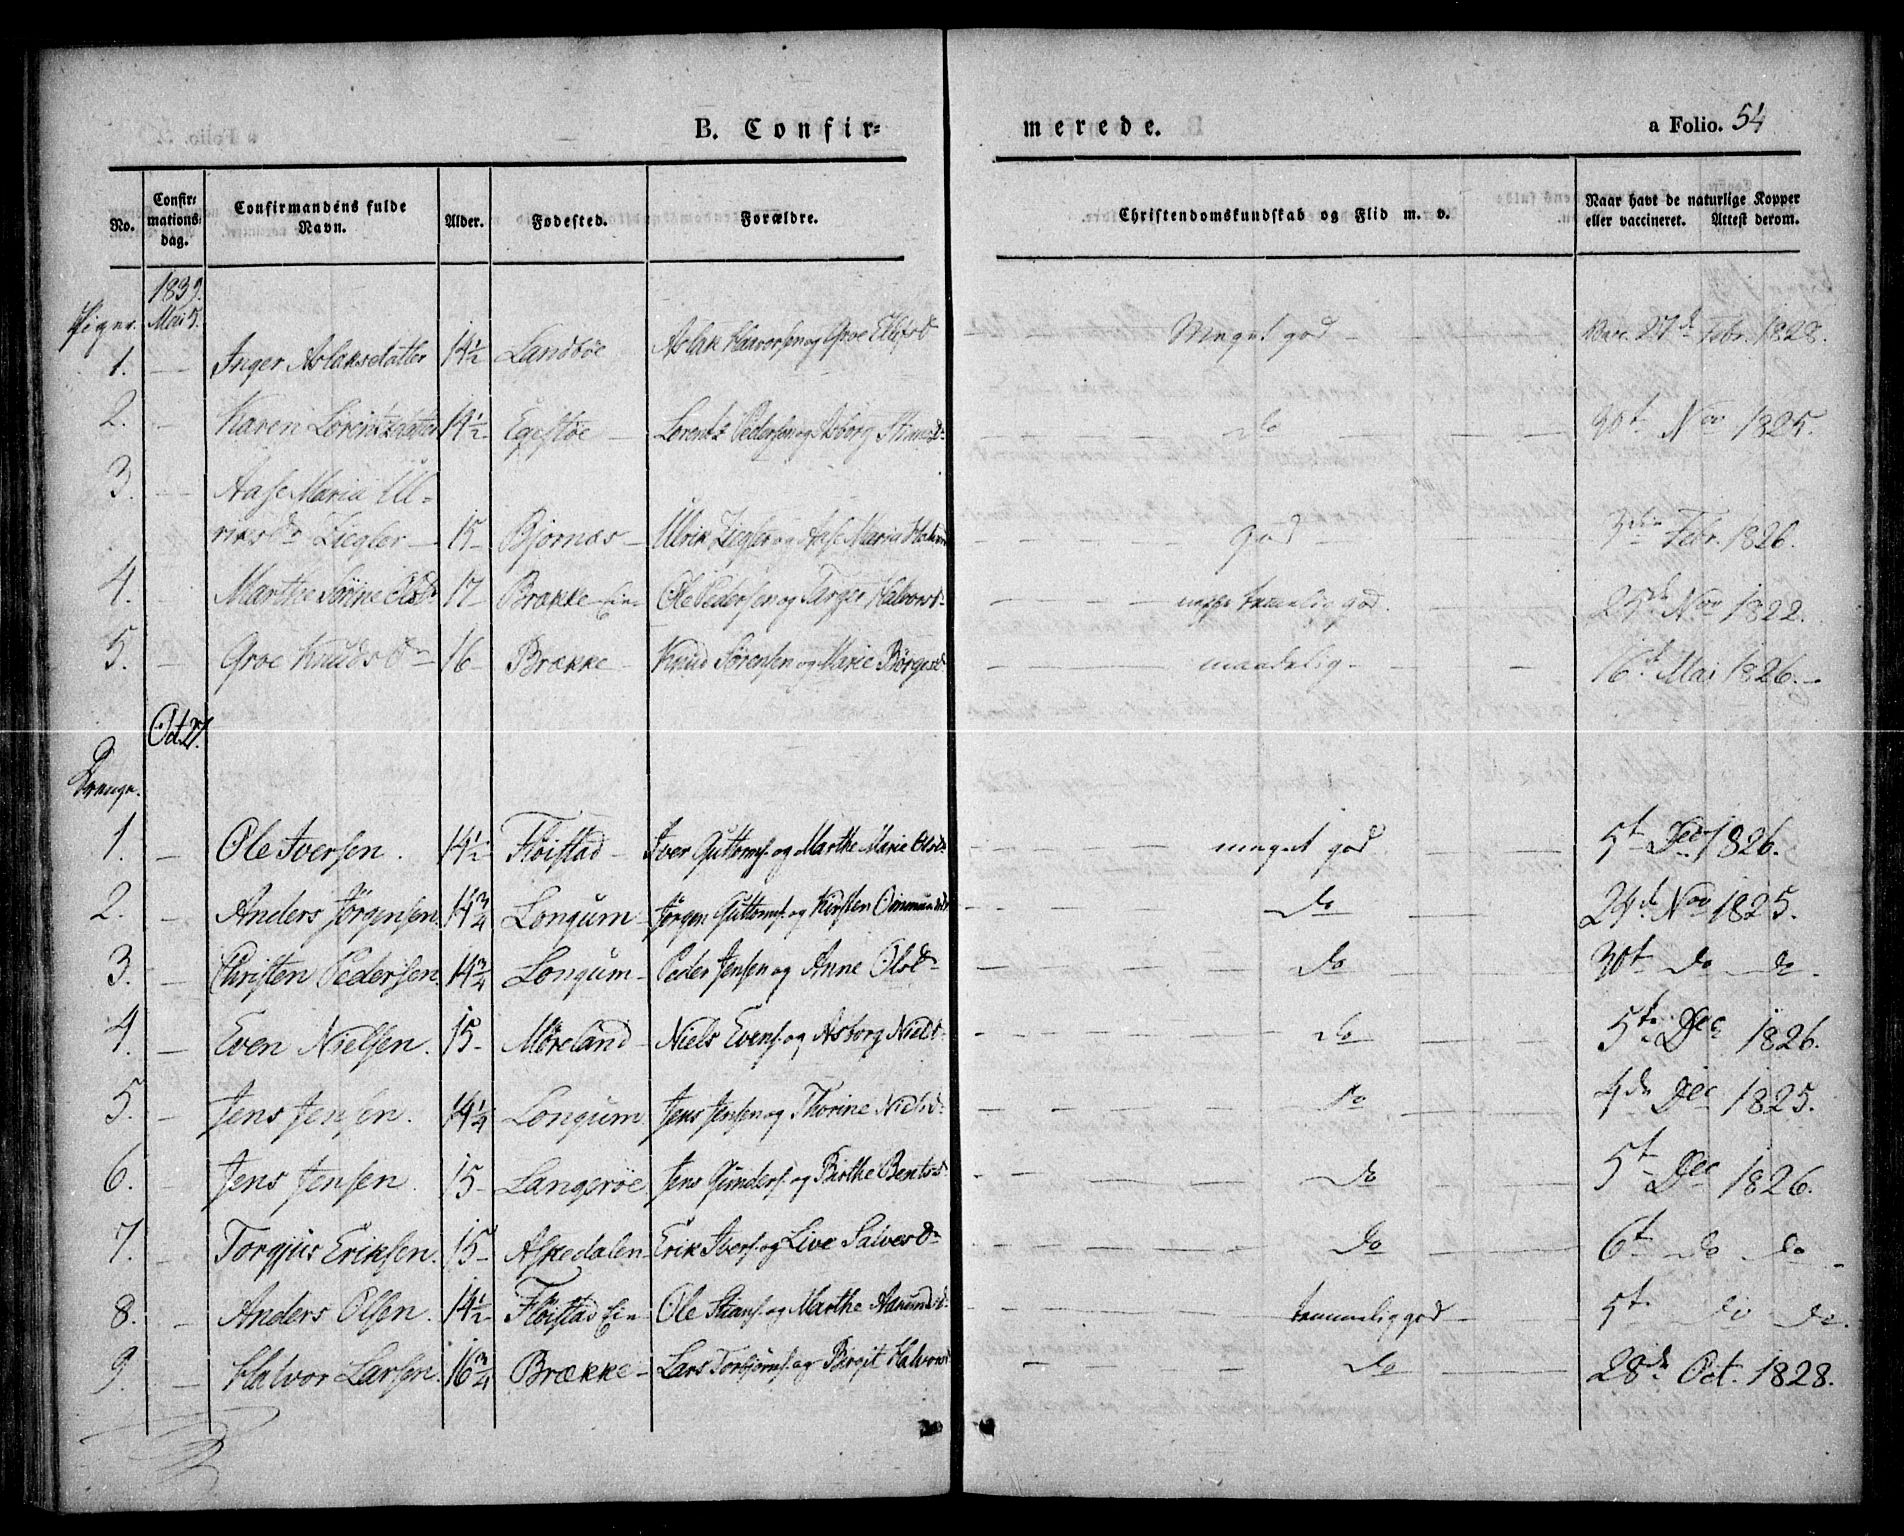 B. Confir=
merede.
a Folio. 54
No.
Confir=
mations=
dag.
Confirmandens fulde
Navn.
Alder.
Fødested.
Forældre.
Christendomskundskab og Flid m. v.
Naar havt de naturlige Kopper
eller vaccineret. Attest derom.
1839.
Piger. Mai 5.
1. — Inger Aslaksdatter 14½ Landbøe Aslak Halvorsen og Groe Ellefsd Meget god — 27d Febr. 1828.
2. — Karen Lorentzdatter 14½ Egestøe — Lorentz Pedersen og Asborg Do 30t Nov 1825.
3. — Aase Maria Ul=
riksdr Ziegler — 15 — Bjornæs — Ulrik Ziegler og Aase Maria God Febr. 1826.
4. — Marthe Sørine Olsdr 17 — Brække Ole Pedersen og Targer Halvorsd temmelig god. Nov 1822.
5. — Groe Knudsdr 16 — Brække — Knud Sørensen og Marie Börgesd maadelig — 16d Mai 1826. —
Oct. 27.
Drenge.
1. — Ole Iversen. 14½ Floistad — Iver Guttoms. og Marthe Marie Olsd meget god 5t Dec 1826.
2. — Anders Jörgensen. 14¾ Longum — Jörgen Guttoms. og Kirsten Omundsd Do 24d Nov 1825.
3. — Christen Pedersen. 14¾ Longum — Peder Jensen og Anne Olsdr Do 30t do do.
4. — Even Nielsen. 15 — Möreland — Niels Evens. og Asborg Nielsd. Do 5te Dec 1826.
5. — Jens Jensen. 14¼ Longum Jens Jensen og Thorine Nielsd. Do 4de Dec 1825.
6. — Jens Jensen. 15 — Langerøe Jens Gunders. og Birthe Bentsd Do 5t Dec 1826.
7. — Torgjus Eriksen. 15 — Askedalen — Erik Ivers. og Live Salvesdr Do 6t do do
8. — Anders Olsen. 14½ Floistad Ole Stians. og Marthe Aasundsd. temmelig god — 5te do do.
9. — Halvor Larsen. 16¾ Brække — Lars Torbjörns. og Birgit Halvorsd Do 28de Oct. 1828.